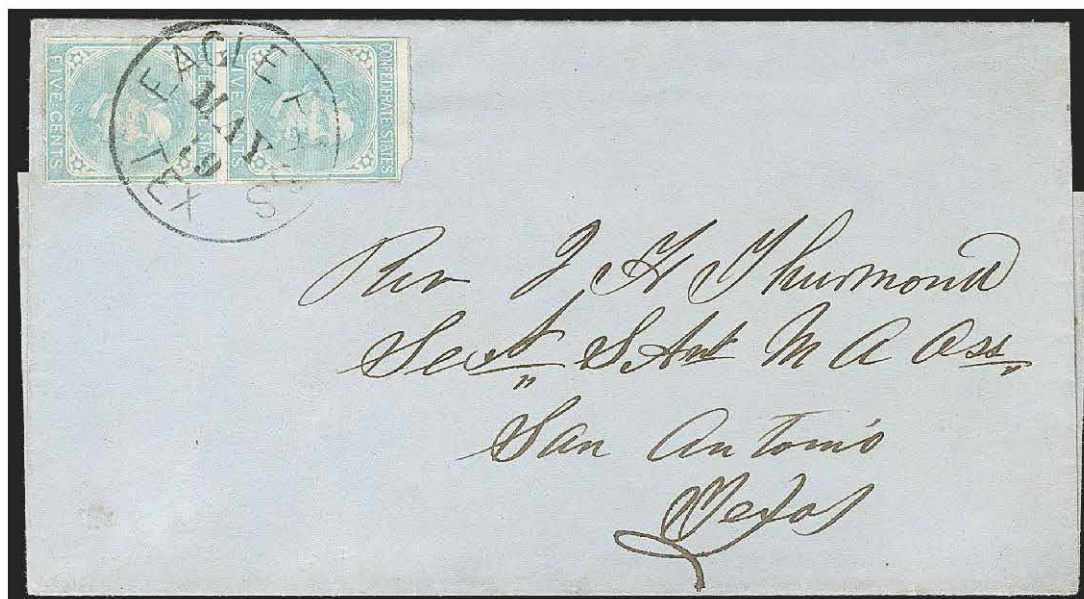 FIVE CENTS
CONFEDERATE STATES
FIVE CENTS
CONFEDERATE STATES
EAGLE
MAY
TEX
S
Rev J H Thurmond
Sect S. Ant M A Ass
San Antonio
Texas